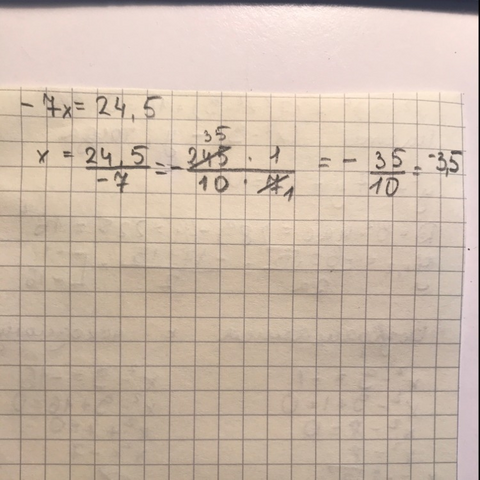 - 7x = 24,5
x = 24,5/-7 = - 245 35 · 1/10 · 7 1 = - 35/10 = -3,5